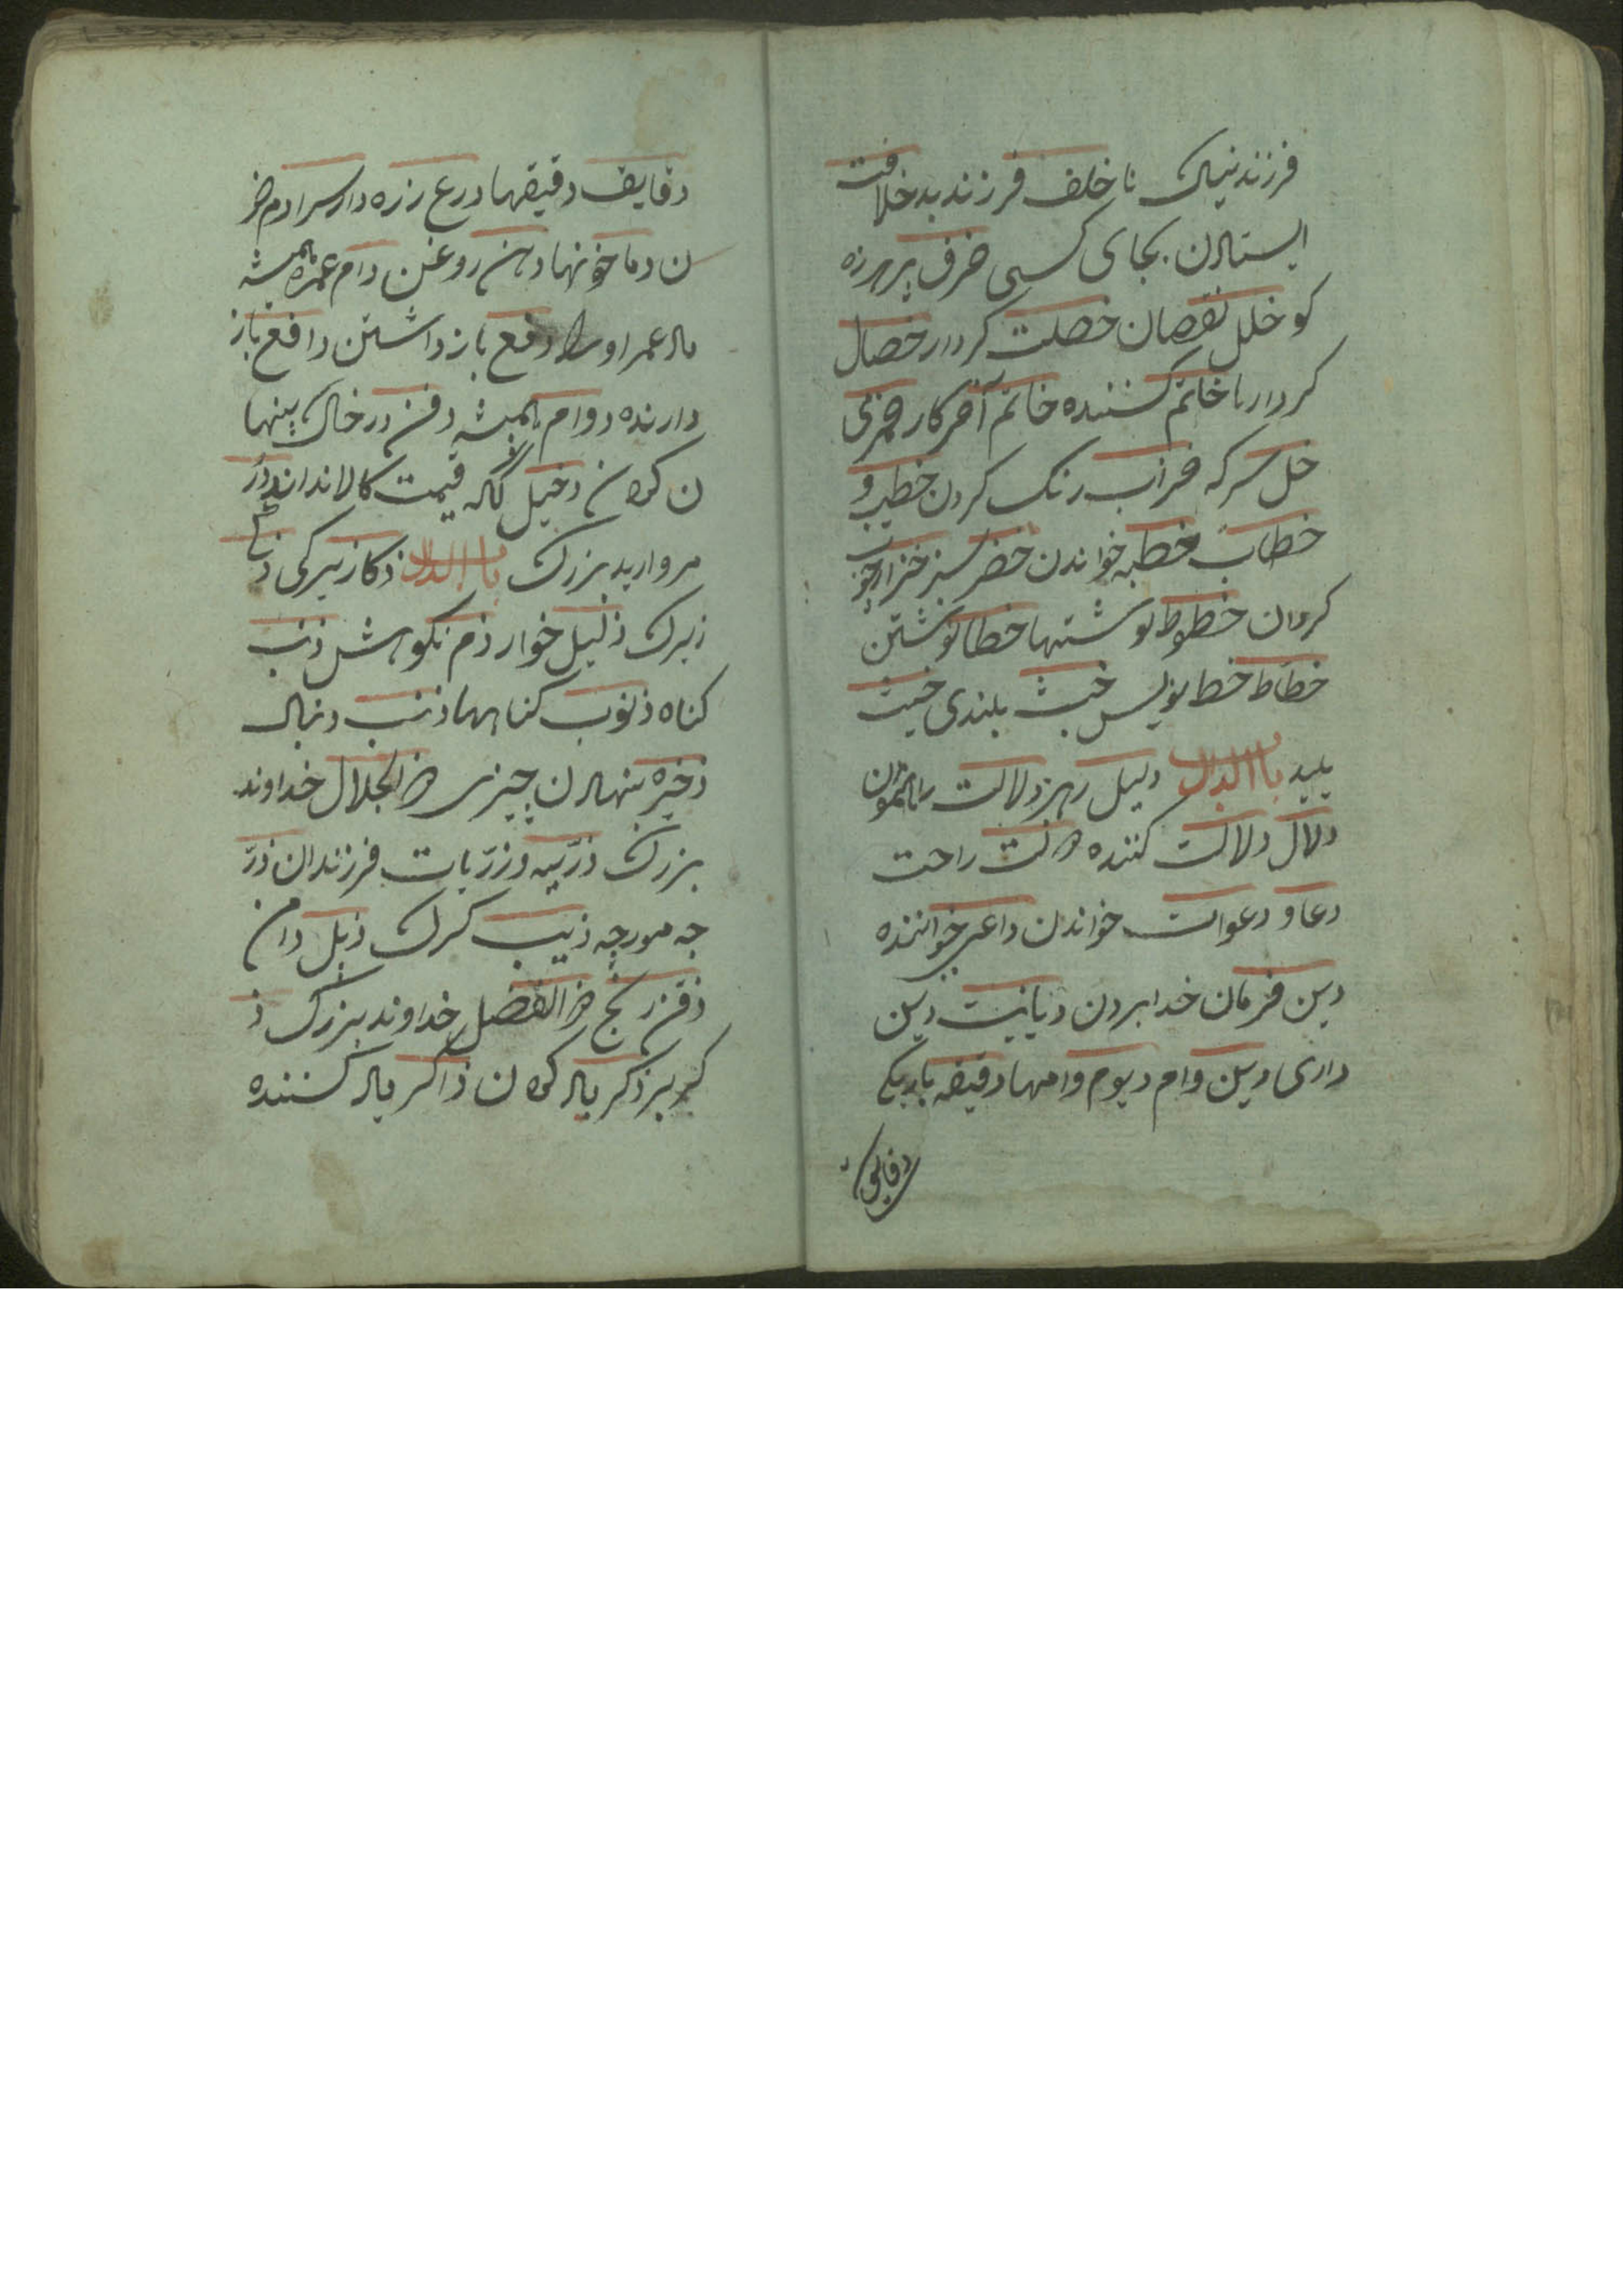 فرزند نیک ناخلف فرزند بد خلافت
ایستادن بجای کسی خرف پیر هرزه
کو خلل نقصان خصلت کردار خصال
کردارها خاتم کننده خاتم آخر کار
خل سرکه خضاب رنک کردن خطیب و
خطاب خطبه خواندن خضر سبز
کردن خطوط نوشتها خطا نوشتن
خطاط خط نویس خبث بلندی خبث
پلید باب الدال دلیل رهبر دلالت راه نمودن
دلال دلالت کننده دولت راحت
دعا و دعوات خواندن داعی خواننده
دین فرمان خدا بردن دیانیت دین
داری دین وام دیوم وامها دقیقه باریکی
دقایق
دقایق دقیقها درع زره دار سرا دم خو
ن دما خونها دهن روغن دام عمره همیشه
باد عمر او را دفع باز داشتن دافع باز
دارنده دوام همیشه دفن در خاک پنها
ن کردن دخیل آنکه قیمت کالا نداند در
مروارید بزرک باب الذال ذکا زیرکی
زیرک ذلیل خوار ذم نکوهش ذنب
کناه ذنوب کناهها ذنب دنبال
ذخیره بنهادن چیزی ذو الجلال خداوند
بزرک ذریه و ذریات فرزندان ذر
جه مورچه ذیب کرک ذیل دامن
ذقن زنخ ذو الفضل خداوند بزرک ذ
کر نر ذکر یاد کردن ذاکر یاد کننده